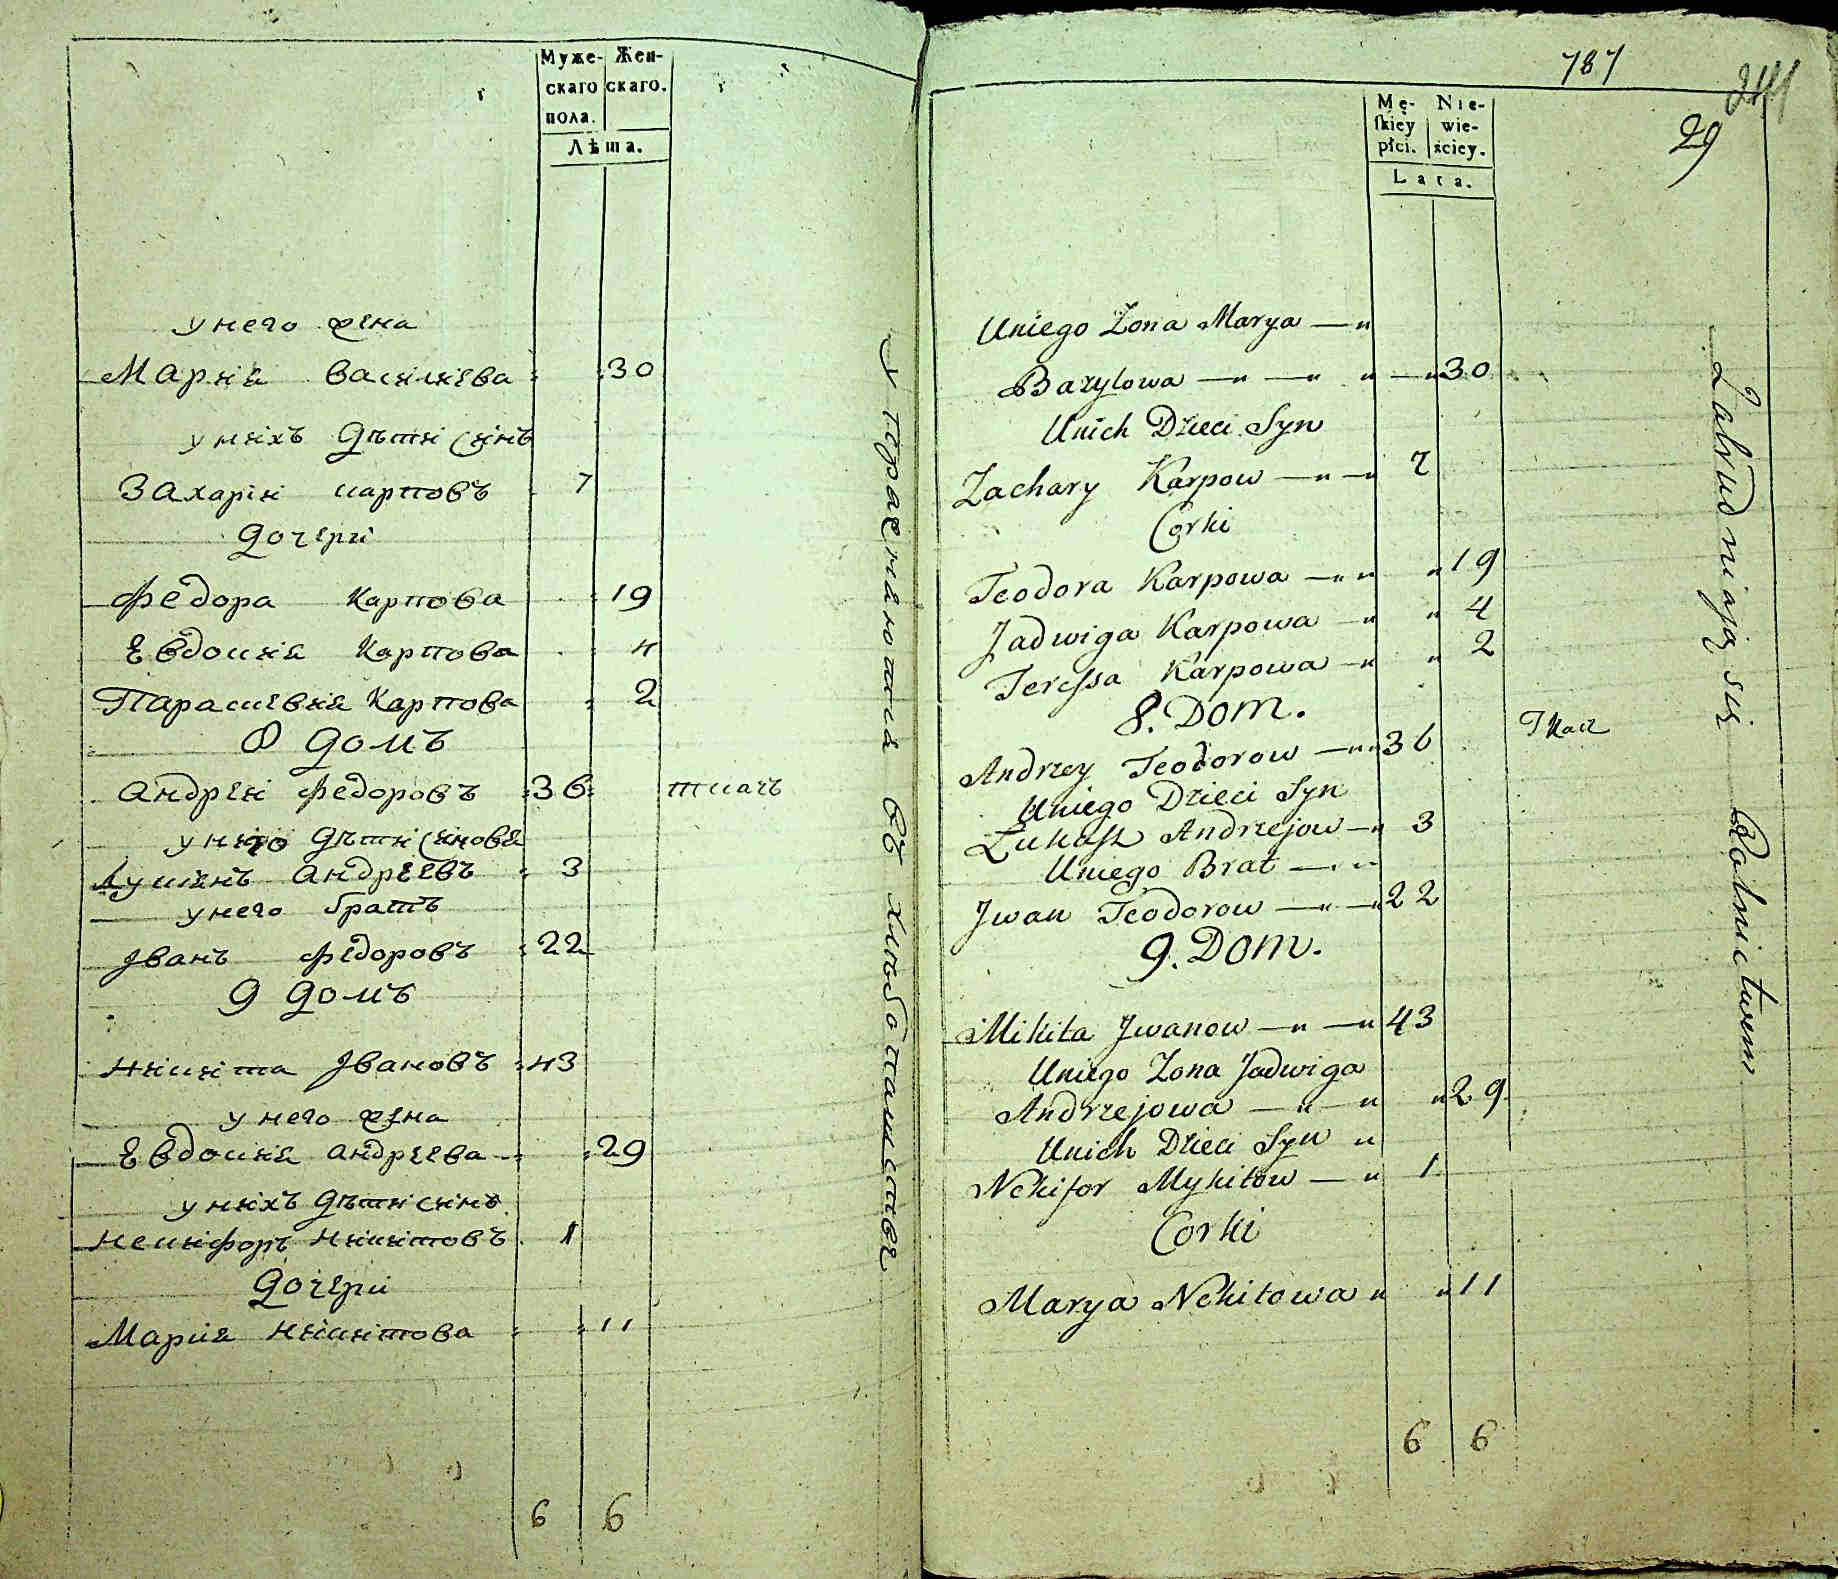 Муже- Жен-
скаго скаго.
пола.
Лѣта.
у него жена
Мария Василиева 30
у нихъ дѣти Синъ
Захарій Карповъ 7
дочери
Федора Карпова 19
Евдокия Карпова 4
Парасковия Карпова 2
8 домъ
Андрей Федоровъ 36 ткачъ
у него дѣти Синовя
Лукянъ Андреевъ 3
у него братъ
Іванъ Федоровъ 22
9 домъ
Никита Івановъ 43
у него жена
Евдокия Андреева 29
у нихъ дѣти синъ
Некифоръ Никитовъ 1
дочери
Мария Никитова 11
6 6
Упражнаются въ хлебопашестве
787
29
Mę- Nie-
skiey wie-
płci. sciey.
Lata.
Uniego Zona Marya
Bazylowa 30
Unich Dzieci Syn
Zachary Karpow 7
Corki
Teodora Karpowa 19
Jadwiga Karpowa 4
Teressa Karpowa 2
8. Dom.
Andrzey Teodorow 36 Tkacz
Uniego Dzieci Syn
Łukasz Andrzejow 3
Uniego Brat
Jwan Teodorow 22
9. Dom.
Mikita Jwanow 43
Uniego Zona Jadwiga
Andrzejowa 29
Unich Dzieci Syn
Nekifor Mykitow 1
Corki
Marya Nekitowa 11
6 6
Zatrudniają się Rolnictwem